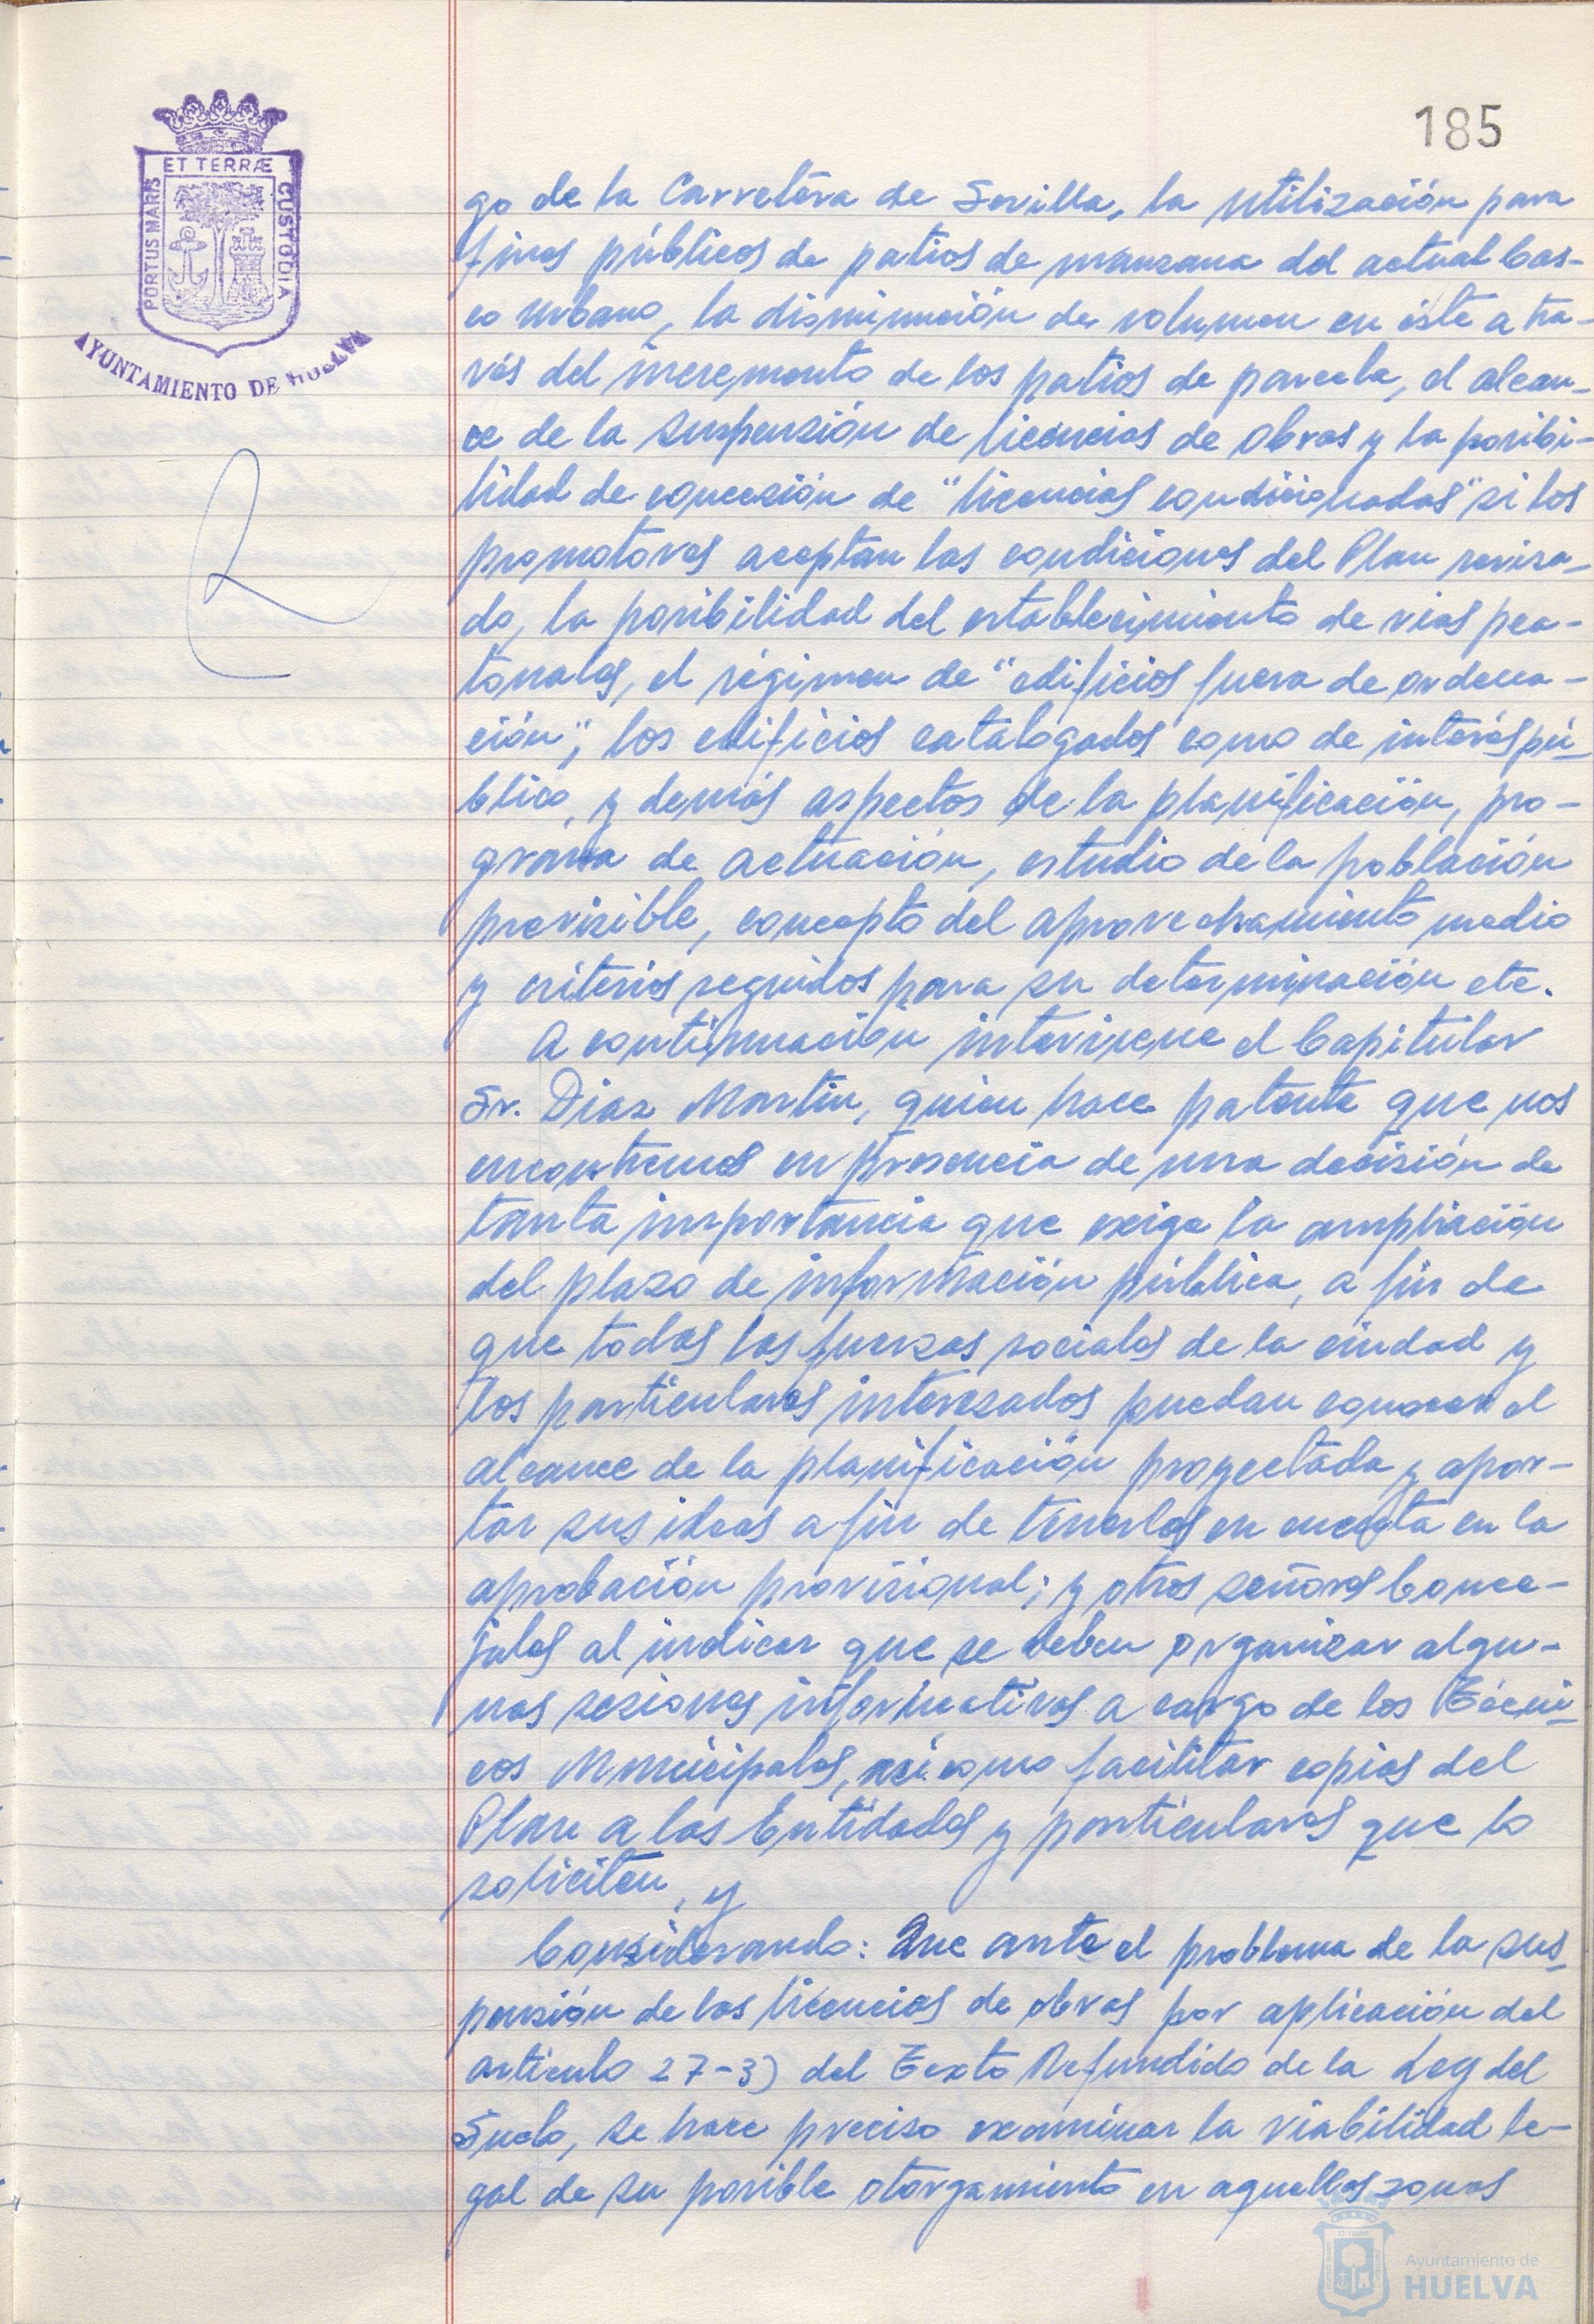 185
ET TERRÆ
PORTUS MARIS
CUSTODIA
AYUNTAMIENTO DE HUELVA
go de la Carretera de Sevilla, la utilización para
fines públicos de patios de manzana del actual Cas-
co Urbano, la disminución de volumen en éste a tra-
vés del incremento de los patios de parcela, el alcan-
ce de la suspensión de licencias de Obras y la posibi-
lidad de concesión de "licencias condicionadas" si los
promotores aceptan las condiciones del Plan revisa-
do, la posibilidad del establecimiento de vias pea-
tonales, el régimen de "edificios fuera de ordena-
ción", los edificios catalogados como de interés pú-
blico, y demás aspectos de la planificación, pro-
grama de actuación, estudio de la población
previsible, concepto del aprovechamiento medio
y criterios seguidos para su determinación etc.
A continuación interviene el Capitular
Sr. Diaz Martin, quien hace patente que nos
encontramos en presencia de una decisión de
tanta importancia que exige la ampliación
del plazo de información pública, a fin de
que todas las fuerzas sociales de la ciudad y
los particulares interesados puedan conocer el
alcance de la planificación proyectada y apor-
tar sus ideas a fin de tenerlas en cuenta en la
aprobación provisional; y otros señores Conce-
jales al indicar que se deben organizar algu-
nas sesiones informativas a cargo de los Técni-
cos Municipales, asi como facilitar copias del
Plan a las Entidades y particulares que lo
soliciten, y
Considerando: Que ante el problema de la sus-
pensión de las licencias de obras por aplicación del
articulo 27-3) del Texto Refundido de la Ley del
Suelo, se hace preciso examinar la viabilidad le-
gal de su posible otorgamiento en aquellas zonas
Ayuntamiento de
HUELVA